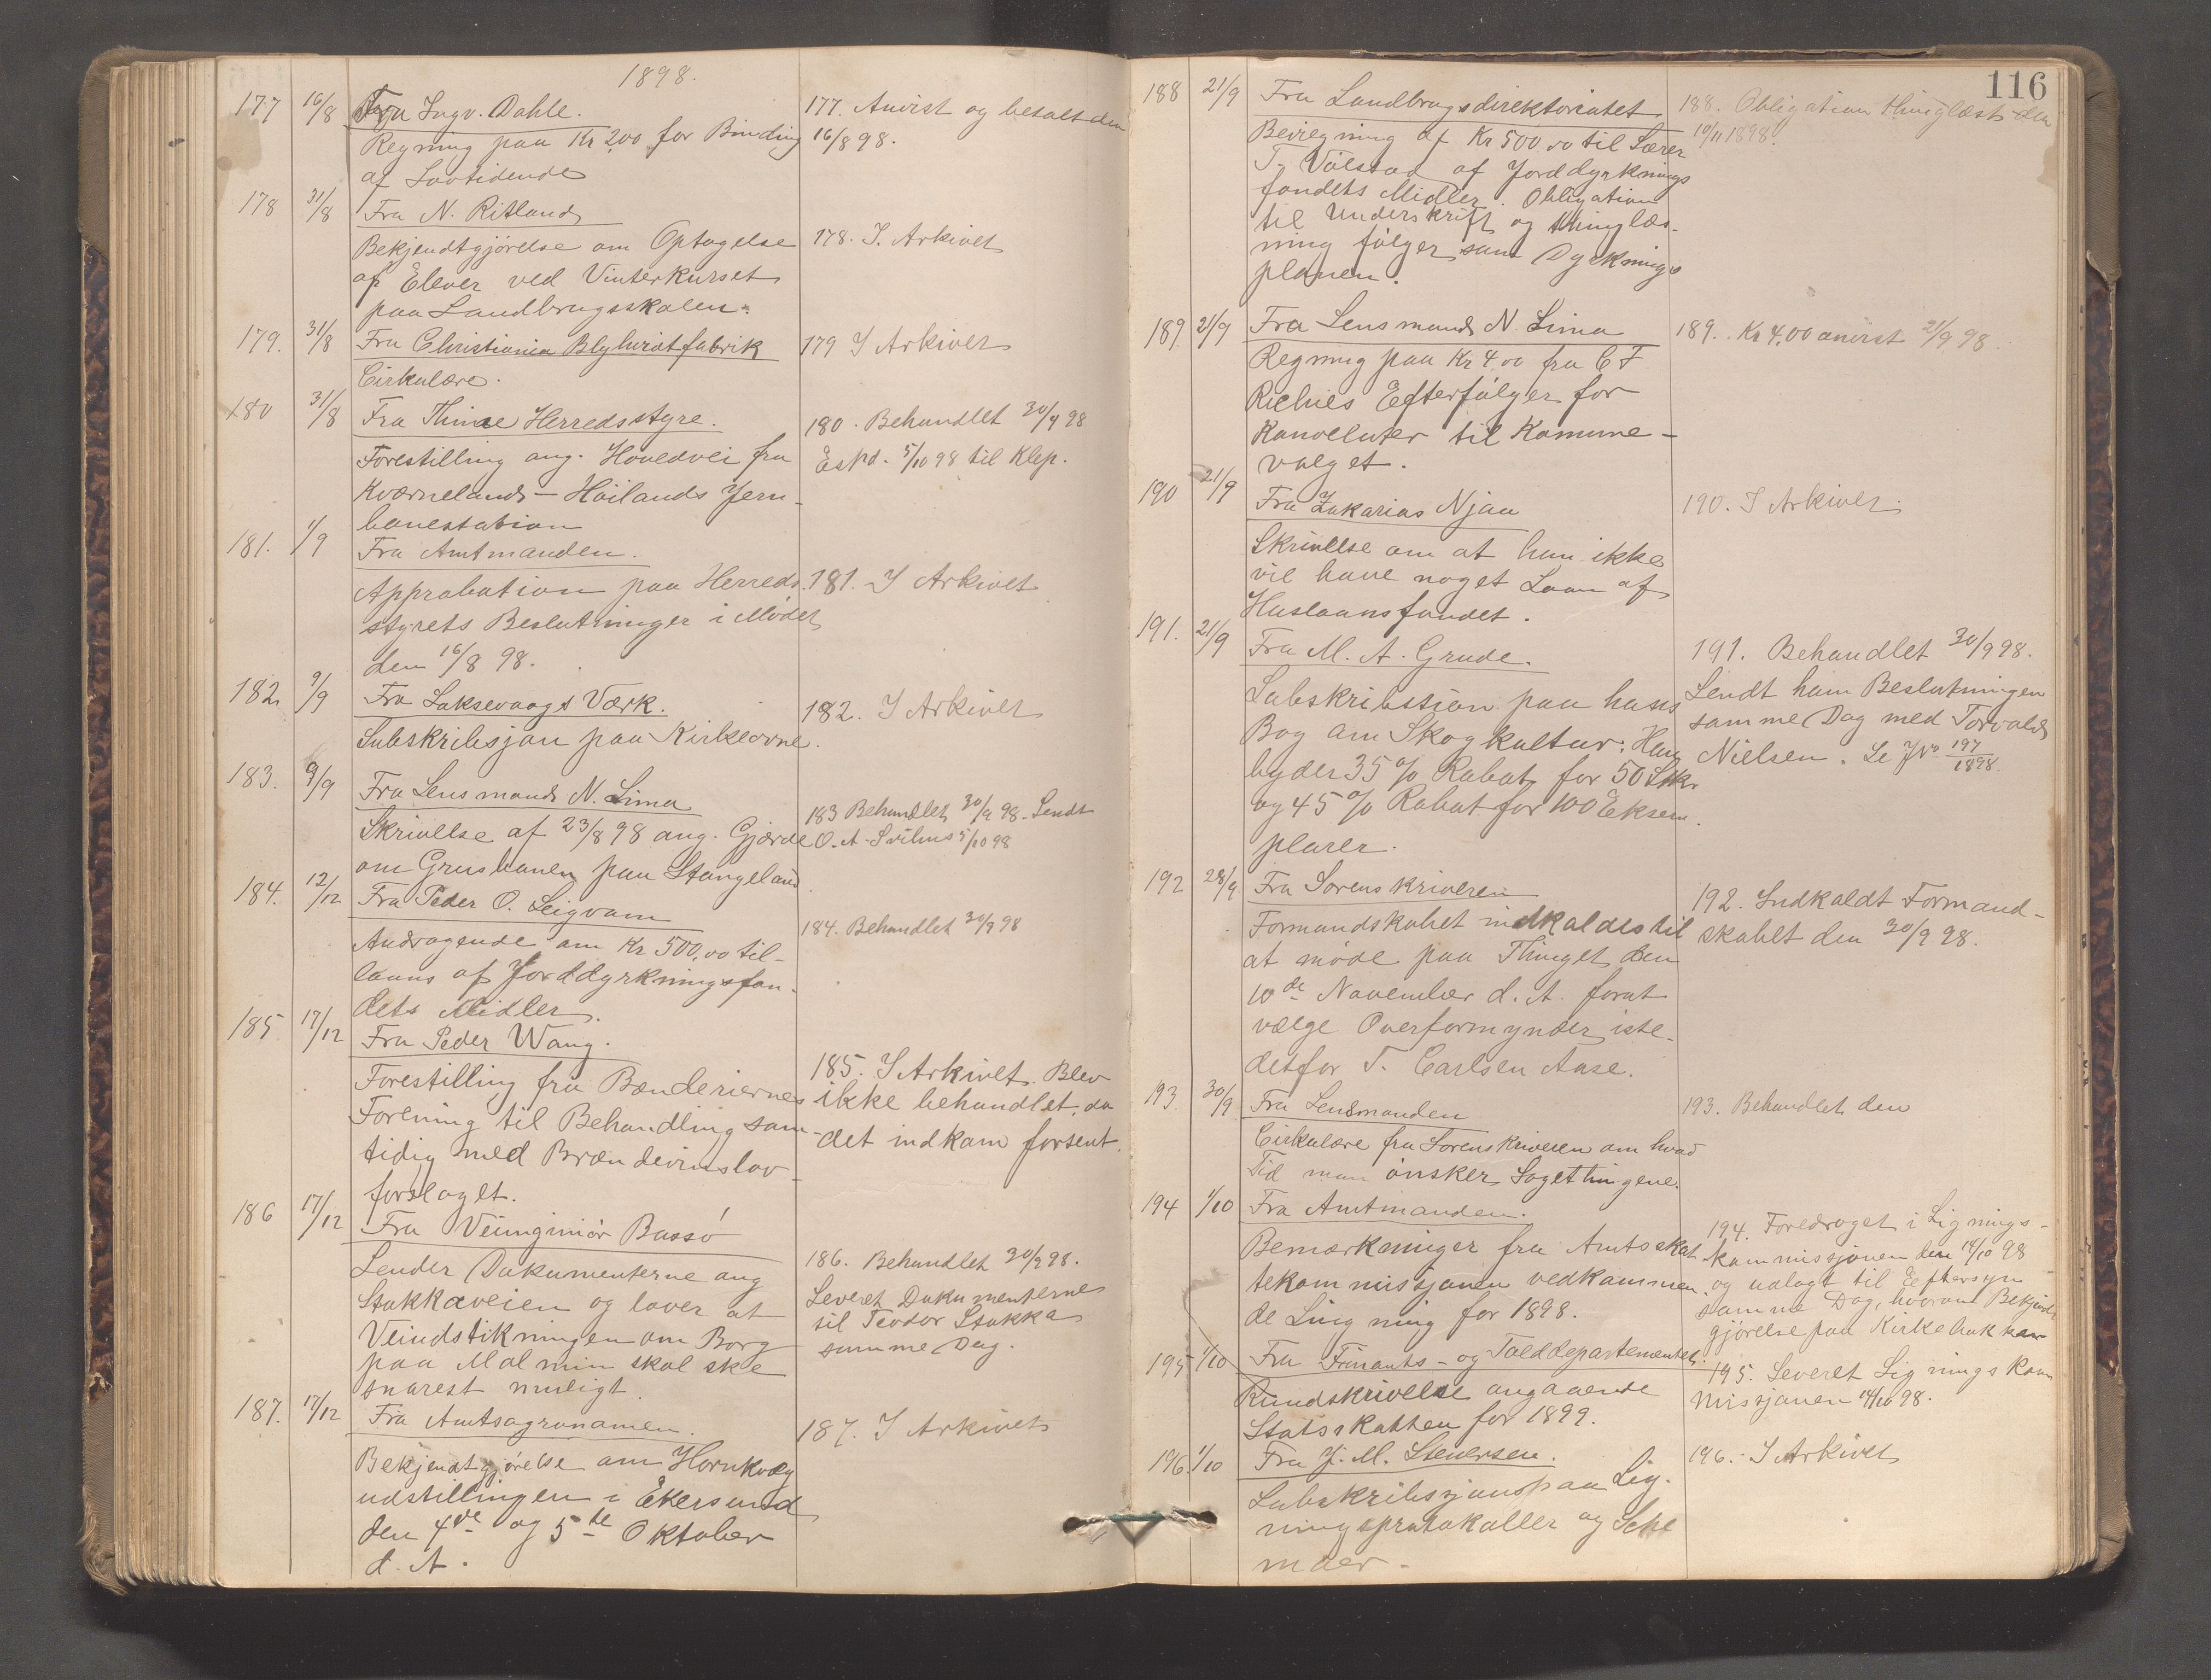 1898.
177 16/8 Fra Ingv. Dahle.
Regning paa Kr 2,00 for Binding
af Lovtidende
177. Anvist og betalt den
16/8 98.
178 31/8 Fra N. Ritland
Bekjendtgjörelse om Optagelse
af Elever ved Vinterkurset
paa Landbrugsskolen.
178. I. Arkivet
179. 31/8 Fra Christiania Blyhvidtfabrik
Cirkulære.
179 I Arkivet
180 31/8 Fra Thime Herredsstyre.
Forestilling ang. Hovedvei fra
Kværneland - Höilands Jern-
banestation
180. Behandlet 30/9 98
Expd. 5/10 98 til Klep.
181. 1/9 Fra Amtmanden.
Approbation paa Herreds-
styrets Beslutninger i Mödet
den 16/8 98.
181. I Arkivet
182. 9/9 Fra Laksevaags Værk.
Subskribsjon paa Kirkeovne.
182. I Arkivet
183. 9/9 Fra Lensmand N. Lima
Skrivelse af 23/8 98 ang. Gjærde
om Grusbanen paa Stangeland.
183 Behandlet 30/9 98. Sendt
O. A. 5/10 98
184. 12/12 Fra Peder O. Leigvam
Andragende om Kr 500,00 til-
laans af Jorddyrkningsfon-
dets Midler.
184. Behandlet 30/9 98
185 17/12 Fra Peder Wang.
Forestilling fra Brænderiernes
Forening til Behandling sam-
tidig med Brændevinslov-
forslaget.
185. I Arkivet. Blev
ikke behandlet, da
det indkom forsent.
186 17/12 Fra Veiinginiör Bassö
Sender Dokumenterne ang
Stokkaveien og lover at
Veiudstikningen om Borg
paa Malmin skal ske
snarest muligt.
186. Behandlet 30/9 98.
Leveret Dokumenterne
til Teodor Stokka
samme Dag.
187. 17/12 Fra Amtsagronomen.
Bekjendtgjörelse om Hornkvæg
udstillingen i Ekersund
den 4de og 5te Oktober
d. A.
187. I Arkivet
116
188 21/9 Fra Landbrugsdirektoriatet
Bevilgning af Kr 500,00 til Lærer
T. Völstad af Jorddyrknings
fondets Midler. Obligation
til Underskrift og thinglæs-
ning fölger samt Dyrknings
planen.
188. Obligation thinglæst den
10/11 1898.
189. 21/9 Fra Lensmand N. Lima
Regning paa Kr 4,00 fra C F
Efterfölger for
Konvoluter til Komune-
valget.
189. Kr 4,00 anvist 21/9 98
190 21/9 Fra Zakarias Njaa
Skrivelse om at han ikke
vil have noget Laan af
Huslaansfondet.
190. I Arkivet.
191. 21/9 Fra M. A. Grude.
Subskribstion paa hans
Bog om Skogkultur. Han
byder 35% Rabat for 50 Stk.
og 45% Rabat for 100 Eksem-
plarer.
191. Behandlet 30/9 98.
Sendt ham Beslutningen
samme Dag med Torvald
Nielsen. Se JNo 197/1898.
192 28/9 Fra Sorenskriveren
Formandskabet indkaldes til
at möde paa Thinget den
10de November d. A. forat
vælge Overformynder iste-
detfor T. Carlsen Aase.
192. Indkaldt Formand-
skabet den 30/9 98.
193. 30/9 Fra Lensmanden
Cirkulære fra Sorenskriveren om hvad
Tid man önsker Sagethingene.
193. Behandlet den
194 1/10 Fra Amtmanden.
Bemærkninger fra Amtsskat-
tekommissjonen vedkommen-
de Ligning for 1898.
194. Foredraget i Lignings-
kommissjonen den 14/10 98
og udlagt til Eftersyn
samme Dag, hvorom Bekjendt
gjörelse paa Kirkebakken
195 1/10 Fra Finants- og Tolddepartementet.
Rundskrivelse angaaende
Statsskatten for 1899.
195. Leveret Lignings Kom
missjonen 14/10 98.
196. 1/10 Fra J. M. Stenersen.
Subskribsjons paa Lig-
ningsprotokoller og Sche
maer.
196. I Arkivet